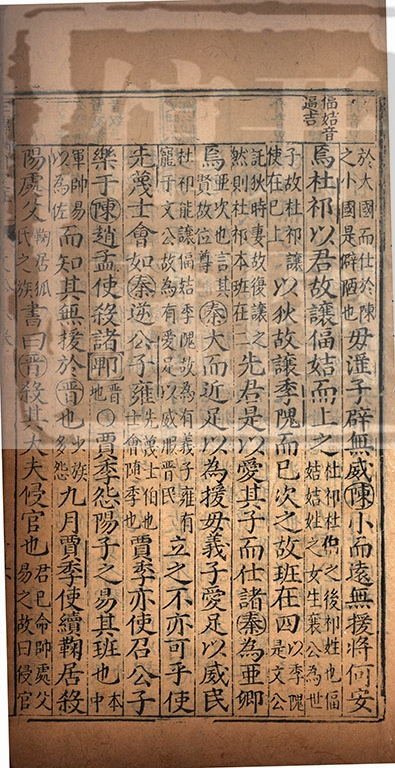 偪姞音
逼吉
於大國而仕於陳
之小國是辟陋也
毋淫子辟無威陳小而遠無援將何安
焉杜祁以君故讓偪姞而上之
杜祁杜伯之後祁姓也偪
姞姞姓之女生襄公為世
子故杜祁讓
使在己上
以狄故讓季隗而已次之故班在四
以季隗
是文公
託狄時妻故復讓之
然則杜祁本班在二
先君是以愛其子而仕諸秦為亞卿
焉
亞次也言其
賢故位尊
秦大而近足以為援毋義子愛足以威民
杜祁能讓偪姞季隗故為有義子雍有
寵于文公故為有愛足以威服晉民
立之不亦可乎使
先蔑士會如秦逆公子雍
先蔑士伯也
士會隨季也
賈季亦使召公子
樂于陳趙孟使殺諸郫
晉
地
○賈季怨陽子之易其班也
本
中
軍帥易
以為佐
而知其無援於晉也
少族
多怨
九月賈季使續鞫居殺
陽處父
鞫居狐
氏之族
書曰晉殺其大夫侵官也
君已命帥處父
易之故曰侵官